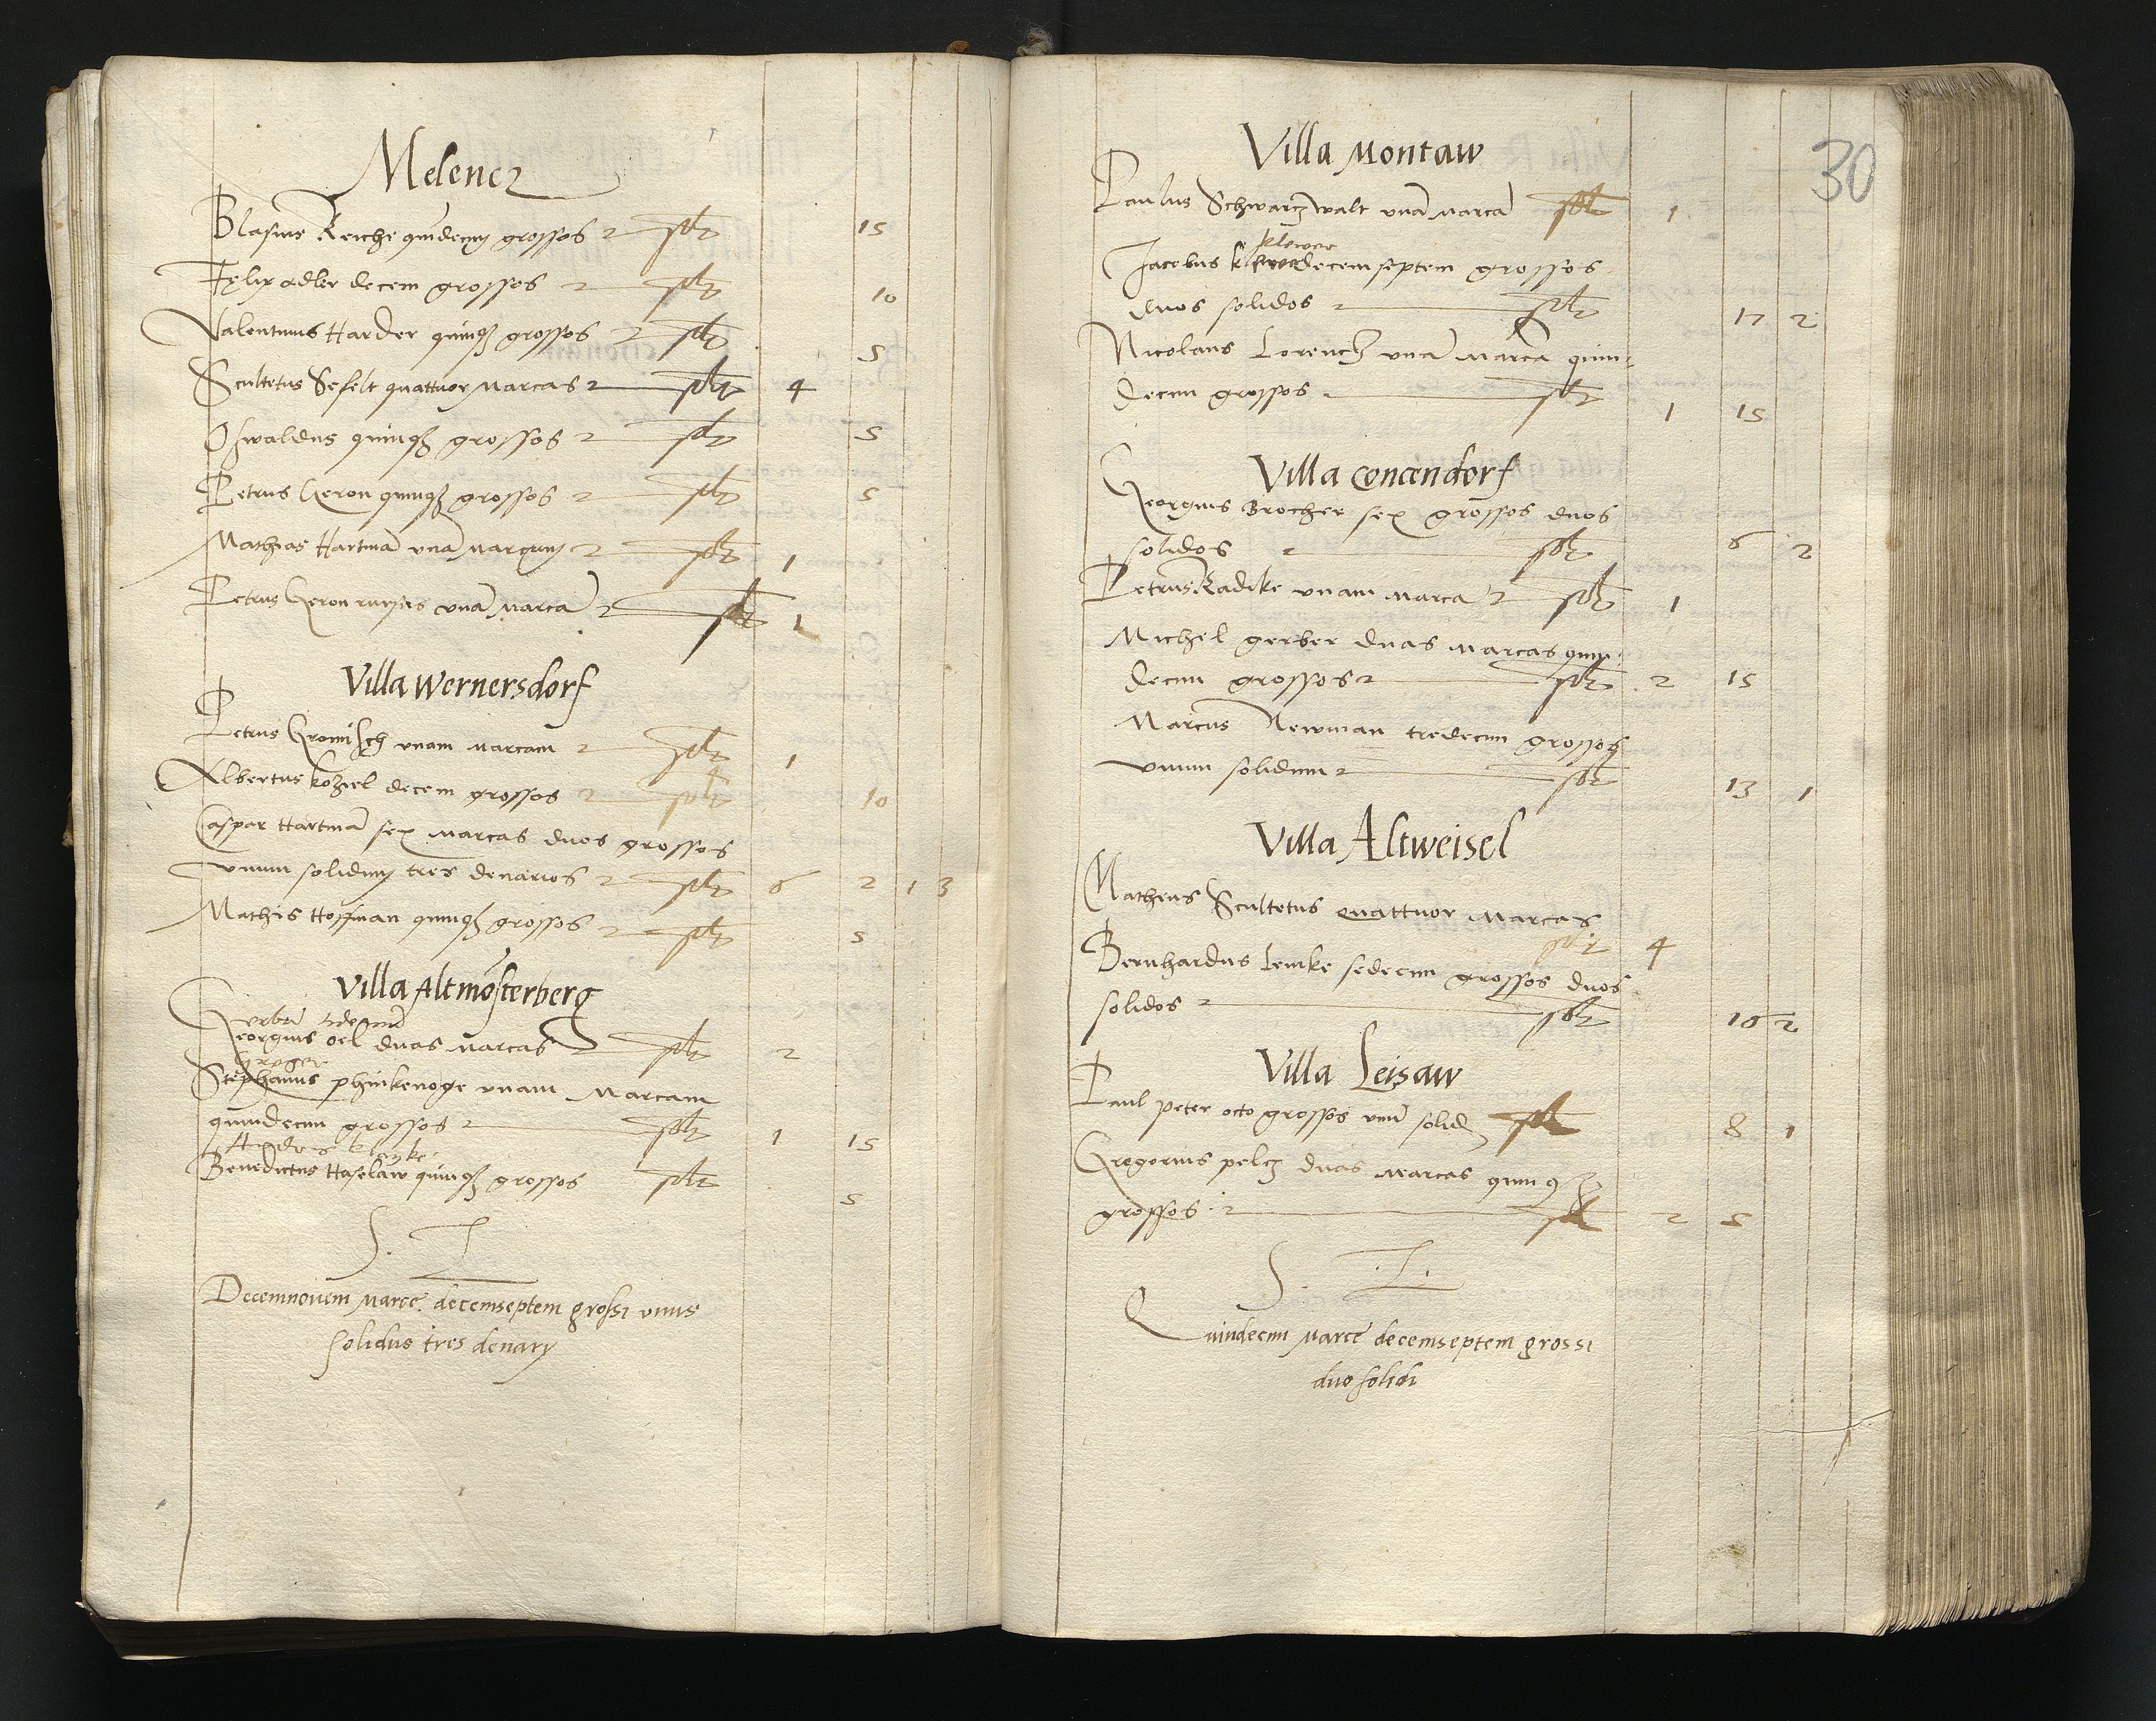 Melencz
Blasius Reiche quindecim grossos solt 15
Felix Adler decem grossos solt 10
Valentinus Harder quinque grossos solt 5
Scultetus Sefelt quattuor Marcas solt 4
Oswaldus quinque grossos solt 5
Petrus Geron quinque grossos solt 5
Mathias Hartmā unā Marcam solt 1
Petrus Geron unā Marcā solt 1
Villa Wernersdorf
Petrus Gromisch unam Marcam solt 1
Albertus Koziel decem grossos solt 10
Caspar Hartmā sex Marcas duos grossos
unum solidum tres denarios solt 6 2 1 3
Mathis Hoffman quinque grossos solt 5
Villa Altmōsterberg
Urban
Georgius oel duas Marcas solt 2
Greger
Stephanus phinkenoge unam Marcam
quindecim grossos solt 1 15
Andres
Benedictus Haselaw quinque grossos solt 5
S. T
Decemnovem Marce decemseptem grossi unus
solidus tres denary
30
Villa Montaw
Paulus Schwarczwalt unā Marcā solt 1
Klewer
Jacobus decemseptem grossos
duos solidos solt 17 2
Nicolaus Lorencz unā Marcā quin-
decim grossos solt 1 15
Villa Concendorf
Georgius Brocher sex grossos duos
solidos solt 6 2
Petrus Radike unam Marcā solt 1
Michel gerber duas Marcas quin-
decim grossos solt 2 15
Marcus Newman tredecim grossos
unum solidum solt 13 1
Villa Altweisel
Matheus Scultetus quattuor Marcas
solt 4
Bernhardus Lemke sedecim grossos duos
solidos solt 16 2
Villa Leisaw
Paul peter octo grossos unū solid solt 8 1
Gregorius pelcz duas Marcas quinque
grossos solt 2 5
S. T.
Quindecim Marce decemseptem grossi
duo solidi